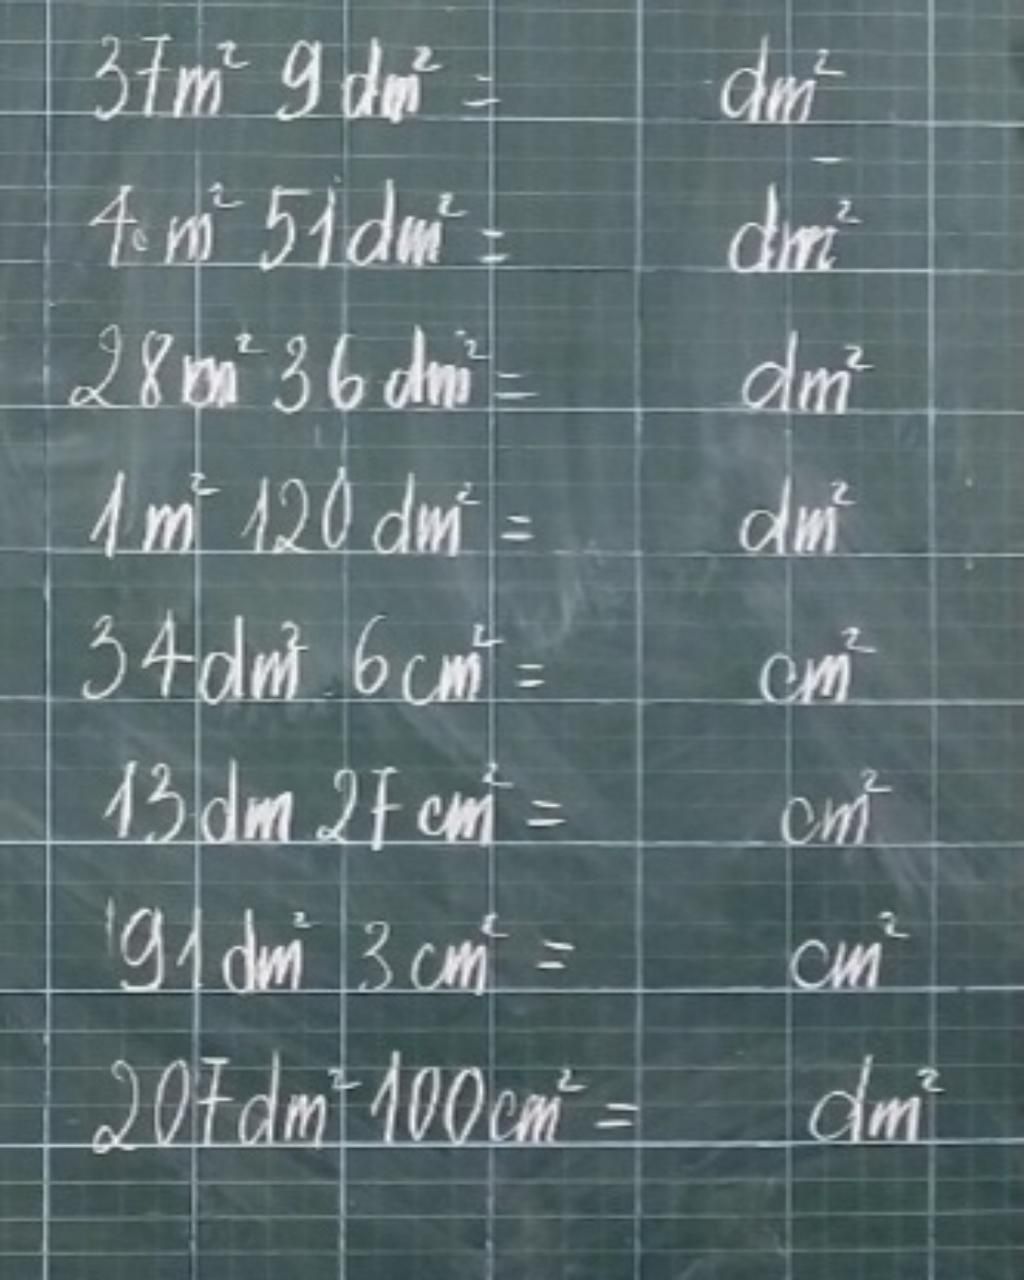 37m² 9 dm² = dm²
4 m² 51 dm² = dm²
28 m² 36 dm² = dm²
1 m² 120 dm² = dm²
34 dm² 6 cm² = cm²
13 dm 27 cm² = cm²
91 dm² 3 cm² = cm²
207 dm² 100 cm² = dm²